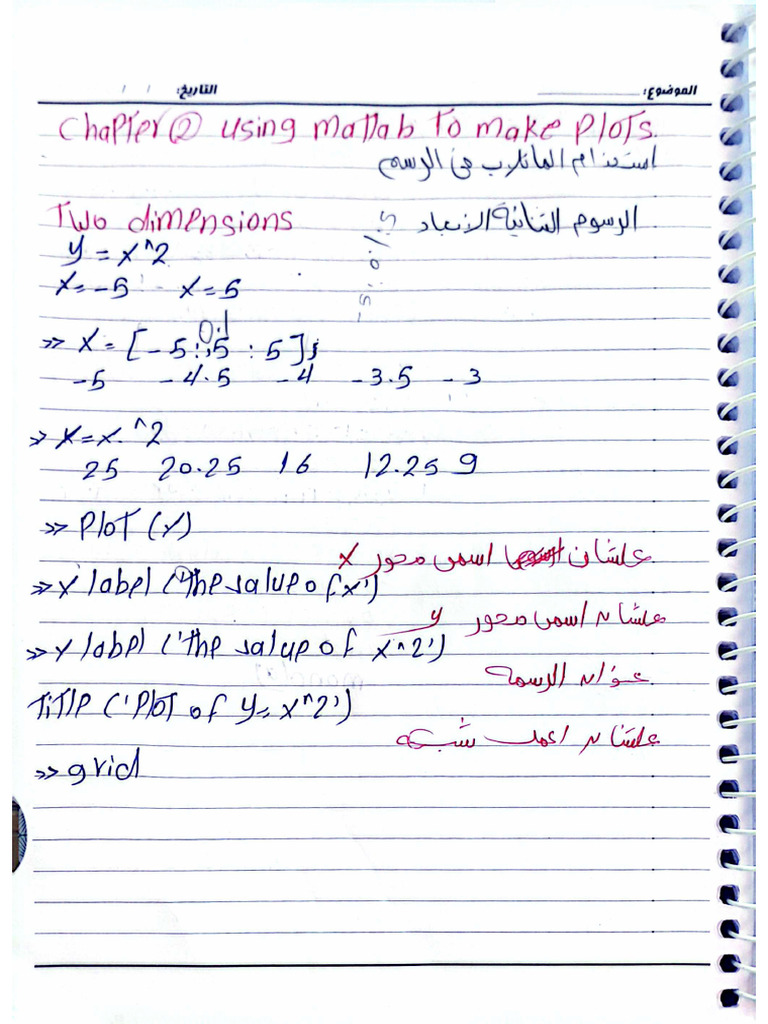 الموضوع: التاريخ: / /
Chapter ② using matlab To make PLOTS.
استخدام الماتلاب في الرسم
Two dimensions الرسوم الثنائية الأبعاد
y = x^2
x=-5 x=5
0.1
>> x = [-5:.5 : 5];
-5 -4.5 -4 -3.5 -3
>> y=x.^2
25 20.25 16 12.25 9
>> PLOT (y)
علشان اسمى محور x
>> x label ('the value of x')
علشان اسمى محور y
>> y label ('the value of x^2')
عنوان الرسمة
TITLE ('PLOT of y= x^2')
علشان اعمل شبكه
>> grid